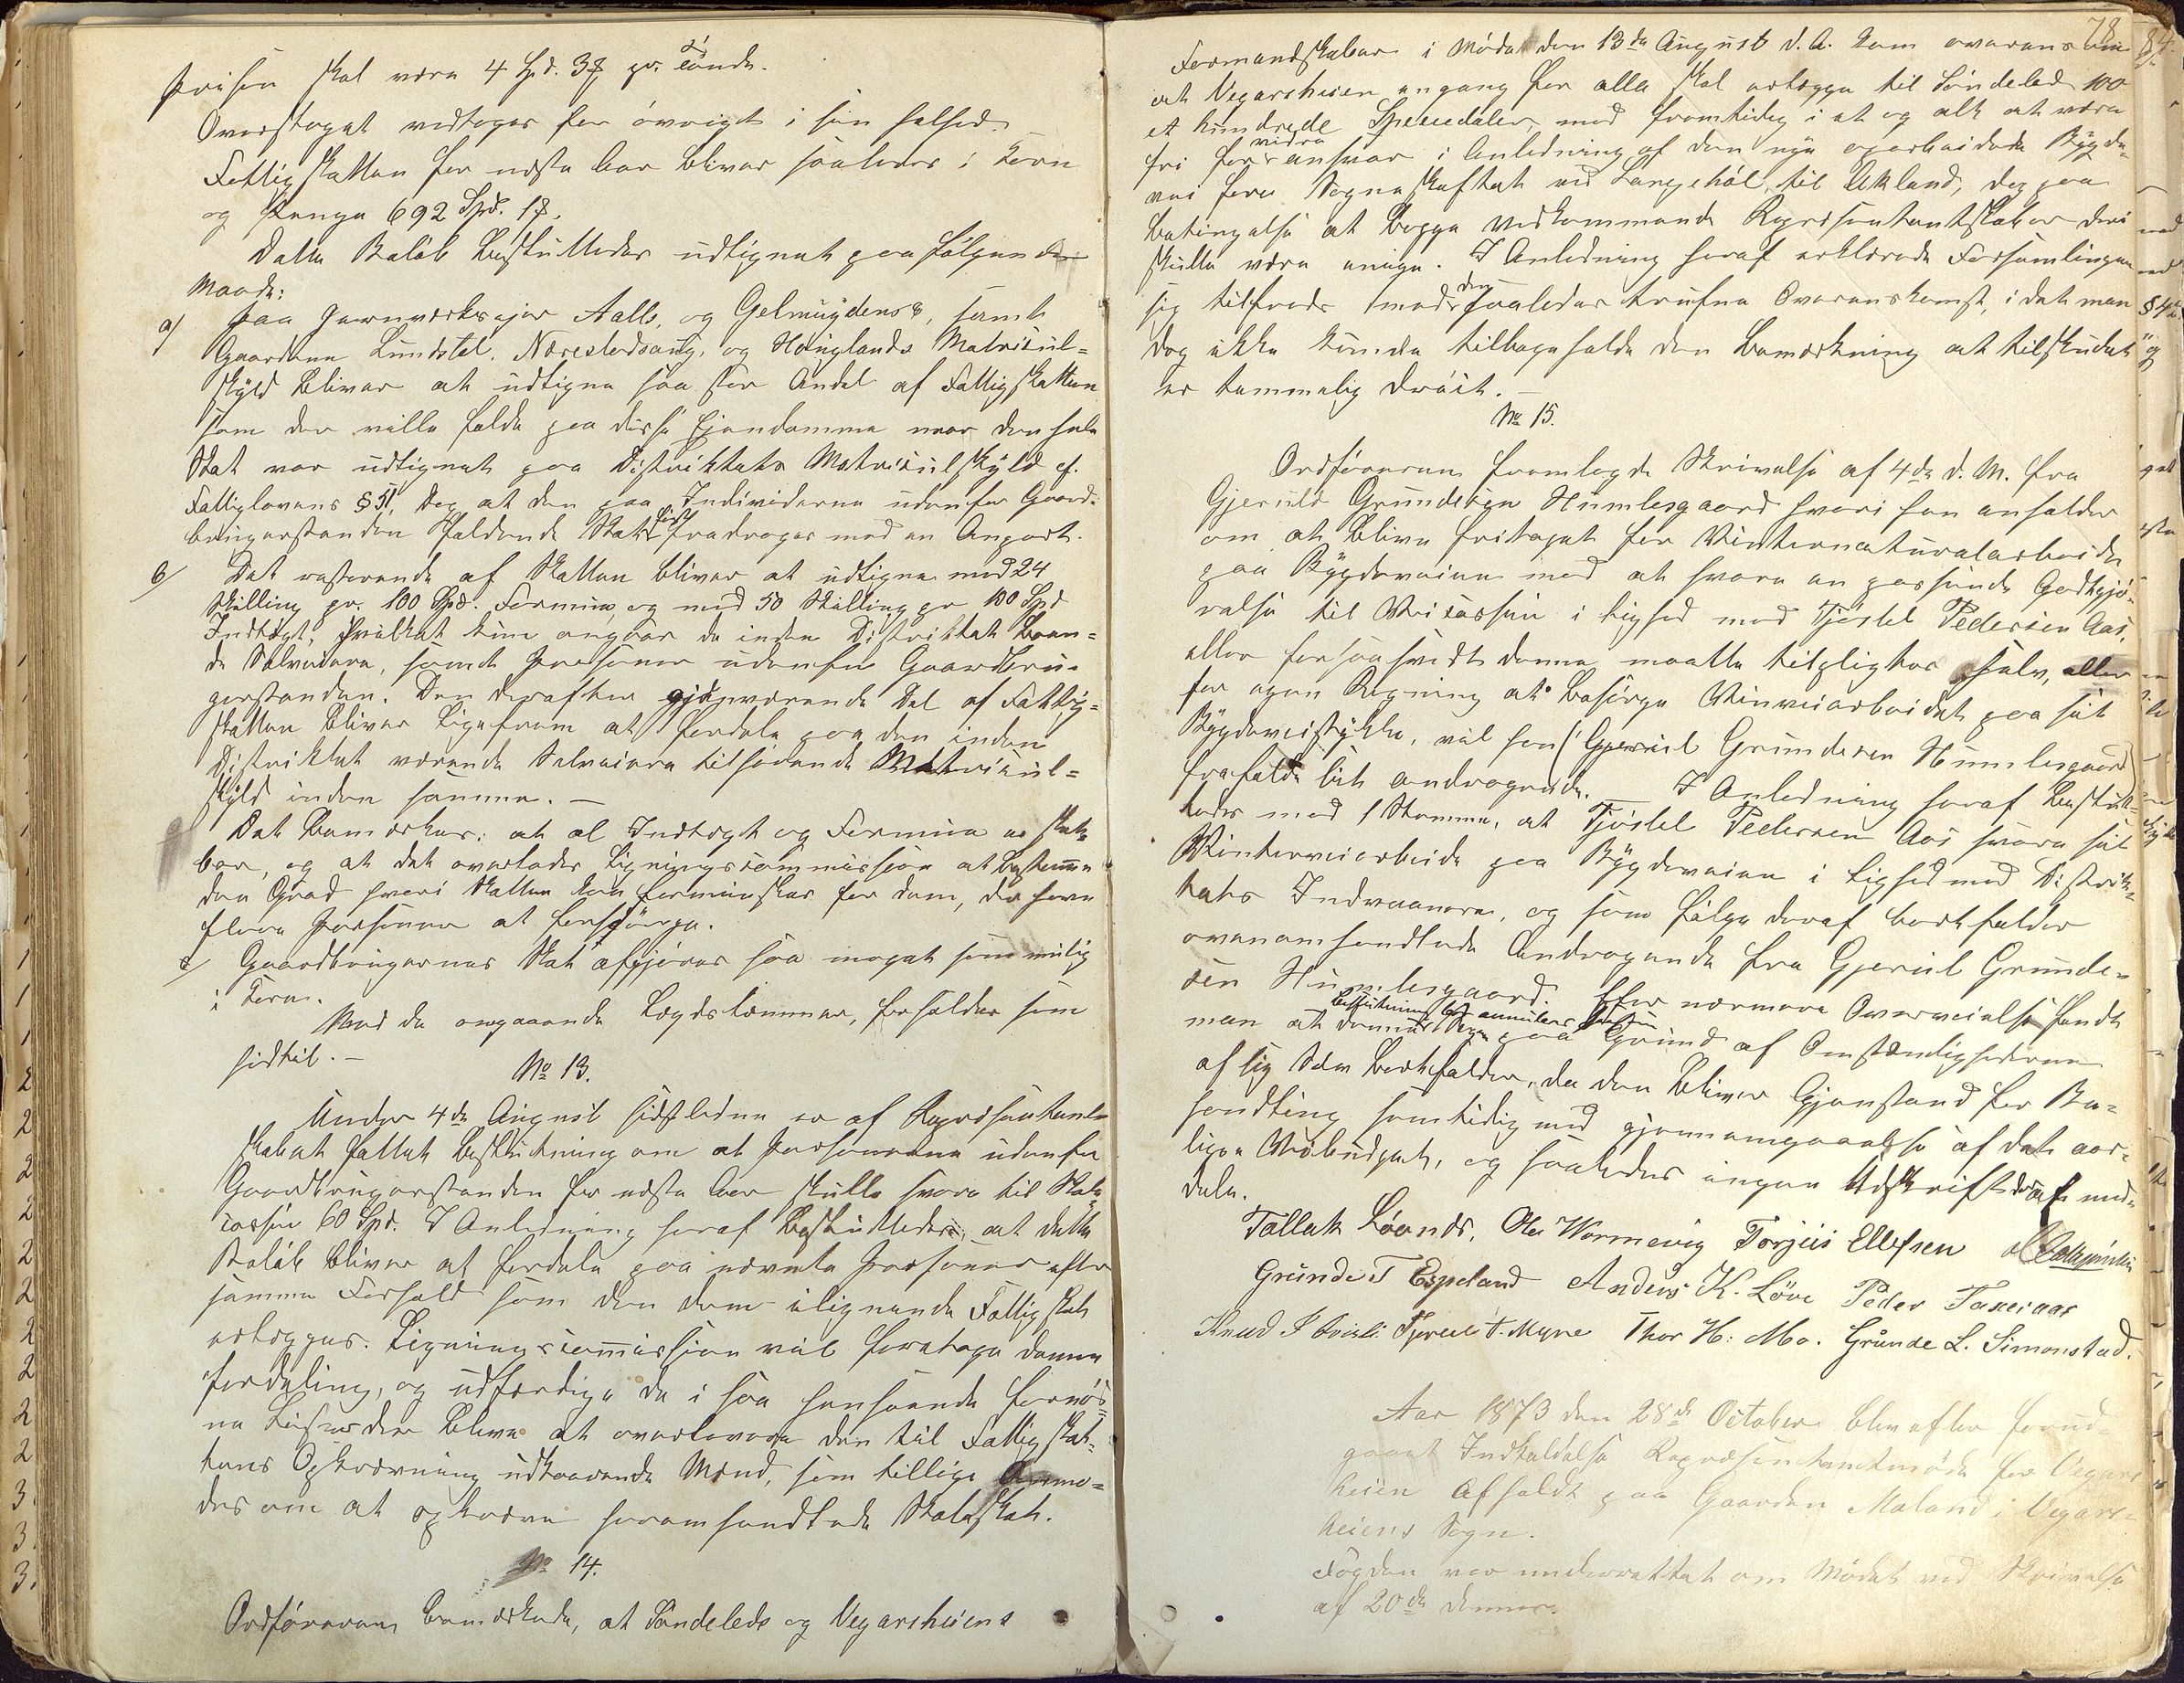 Prisen skal være 4 Spd. 3 ₰ pr. Tönde.
Overslaget vedtoges for övrigt i sin helhed.
Fattigskatten for næste Aar bliver saaledes i Korn
og Penge 692 Spd. 1 ₰.
Dette Belöb besluttedes udlignet paa fölgende
Maade:
a) Paa Jernværksejer Aalls, og Gelmuydens, samt
Gaardene Lundstel, Nærestedsaug, og Houglands Matricul=
skyld bliver at udligne saa stor Andel af Fattigskatten
som der vilde falde paa disse Ejendomme naar den hele
Skat var udlignet paa Distriktets Matriculskyld cf.
Fattiglovens § 51, dog at den paa Individerne udenfor Gaard=
brugerstanden faldende Skat först fradrages med en Anpart.
b) Det resterende af Skatten bliver at udligne med 24
Skilling pr. 100 Spd. Formue, og med 50 Skilling pr 100 Spd
Indtægt, hvilket kun angaar de inden Distriktet boen=
de Selveiere, samt Personer udenfor Gaardbru=
gerstanden. Den derefter gjenværende Del af Fattig=
skatten bliver ligefrem at fordele paa den inden
Distriktet værende Selveiere tilhörende Matricul=
skyld inden samme. —
Det bemærkes: at al Indtægt og Formue er skat=
bar, og at det overlades Ligningscommissjon at bestemme
den Grad hvori Skatten kan forminskes for dem, der have
flere Personer at forsörge.
c) Gaardbrugernes Skat afgjöres saa meget som mulig
i Korn.
Med de omgaaende Lægdslemmer, forholdes som
hidtil. —
No 13.
Under 4de August sidstleden er af Repræsentant=
skabet fattet Beslutning om at Personerne udenfor
Gaardbrugerstanden for næste Aar skulle svare til Skole=
cassen 60 Spd. I Anledning heraf besluttedes, at dette
Belöb bliver at fordele paa nævnte Personer efter
samme Forhold som den dem ilignende Fattigskat
erlægges. Ligningscommissjon vil foretage denne
fordeling, og udfærdige de i saa henseende fornöd=
ne Lister der blive at overlevere den til Fattigskat=
tens Opkrævning udkaarende Mænd, som tillige anmo=
des om at opkræve heromhandlede Skoleskat.
No 14.
Ordföreren bemærkede, at Söndeleds og Vegarsheiens
78
Formandskaber i Möde den 13de August d. A. kom overens om
at Vegarsheien engang for alle skal erlægge til Söndeled 100
et hundrede Speciedaler, mod fremtidig i et og alt at være
fri for videre ansvar i Anledning af den nye oparbeidede Bygde=
vei fra Sogneskjellet ved Langehöl, til Akland, dog paa
betingelse at begge vedkommende Repræsentantskaber deri
skulle være enige. I Anledning heraf erklærede Forsamlingen
sig tilfreds med den saaledes trufne Overenskomst, i det man
dog ikke kunde tilbageholde den bemærkning at tilskudet
er temmelig dröit. —
No 15.
Ordföreren fremlagde Skrivelse af 4de d. M. fra
Gjeruld Grundesen Humlesgaard hvori han anholder
om at blive fritaget for Vinternaturalarbeide
paa Bygdeveien mod at svare en passende Godtgjö=
relse til Veicassen i lighed med Tjöstel Pedersen Aas.
eller forsaavidt denne maatte tilpligtes selv, eller
for egen Regning at besörge Vinveiarbeidet paa sit
Bygdeveistykke, vil han (Gjeruld Grundesen Humlesgaard)
frafalde sit andragende. — I Anledning heraf beslut=
tedes med 1 Stemme, at Tjöstel Pedersen Aas svare sit
Vinterveiarbeide paa Bygdeveien i Lighed med Distrik=
tets Indvaanere, og som fölge deraf bortfalder
ovenomhandlede Andragende fra Gjeruld Grunde=
sen Humlesgaard. Efter nærmere Overveielse fandt
man at denne Beslutning paa Grund af Omstændighederne
af sig selv bortfalder, da den bliver Gjenstand for Be=
handling samtidig med gjennemgaaelse af det aar=
lige Veibudget, og saaledes ingen Udskrift deraf med=
dele.
Tallak Lövnds, Ole Wormevig Torjus Ellefsen
Grunde T Espeland Anders K. Löve Peder Taxeraas
Knud J Gjeruld T. Myre Thor H: Mo. Grunde L. Simonstad.
Aar 1873 den 28de October blev efter forud=
gaaet Indkaldelse Repræsentantmöde for Vegars
heien afholdt paa Gaarden Moland i Vegars=
heiens Sogn.
Fogden var underrettet om Mödet ved Skrivelse
af 20de dennes.